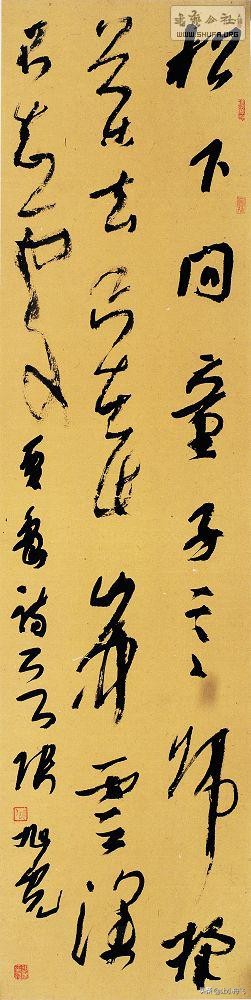 松下問童子言師採
藥去只在此山中雲深
不知處 賈島詩 張旭光
書法公社
WWW.SHUFA.ORG